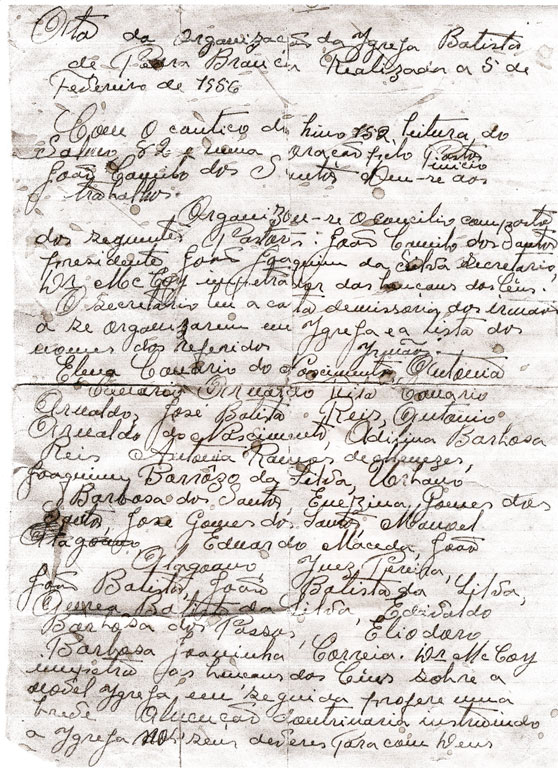 Ata da organização da Ygrefa Batista
de Pedra Branca Realizada a 5 de
Fevereiro de 1956
Com o cantico do hino 152, leitura do
Salmo 82 e uma oração pelo Pastor
João Camilo dos Santos deu-se inicio aos
trabalhos.
Organizou-se o concilio composto
dos seguintes Pastores: João Camilo dos Santos
presidente João Joaquim da Silva Secretario,
Dr. Mc Coy impetrador das bencaus dos Ceus.
O secretario leu a carta demissoria dos irmãos
a se organizarem em Ygrefa e a lista dos
nomes dos referidos Yrmãos:
Elena Canario do Nascimento, Antonia
Canario Arnaldo, Canario
Arnaldo, José Batista Reis, Antonio
Arnaldo do Nascimento, Barbosa
Reis Antonia Ramos de menezes,
Joaquim Barrôzo da Silva, Urbano
Barbosa dos Santos, Gomes dos
Santos, José Gomes dos Santos Manoel
Eduardo Macedo, João
Ynez Pereira,
João Batista, João Batista da Silva,
Batista da Silva, Edivaldo
Barbosa dos Passos, Eliodoro
Barbosa Joaninha Correia. Dr Mc Coy
impetra as bencaus dos Ceus sobre a
novel Ygrefa em seguida profere uma
breve alucução doutrinaria instruindo
a Ygrefa nos seus deveres Para com Deus